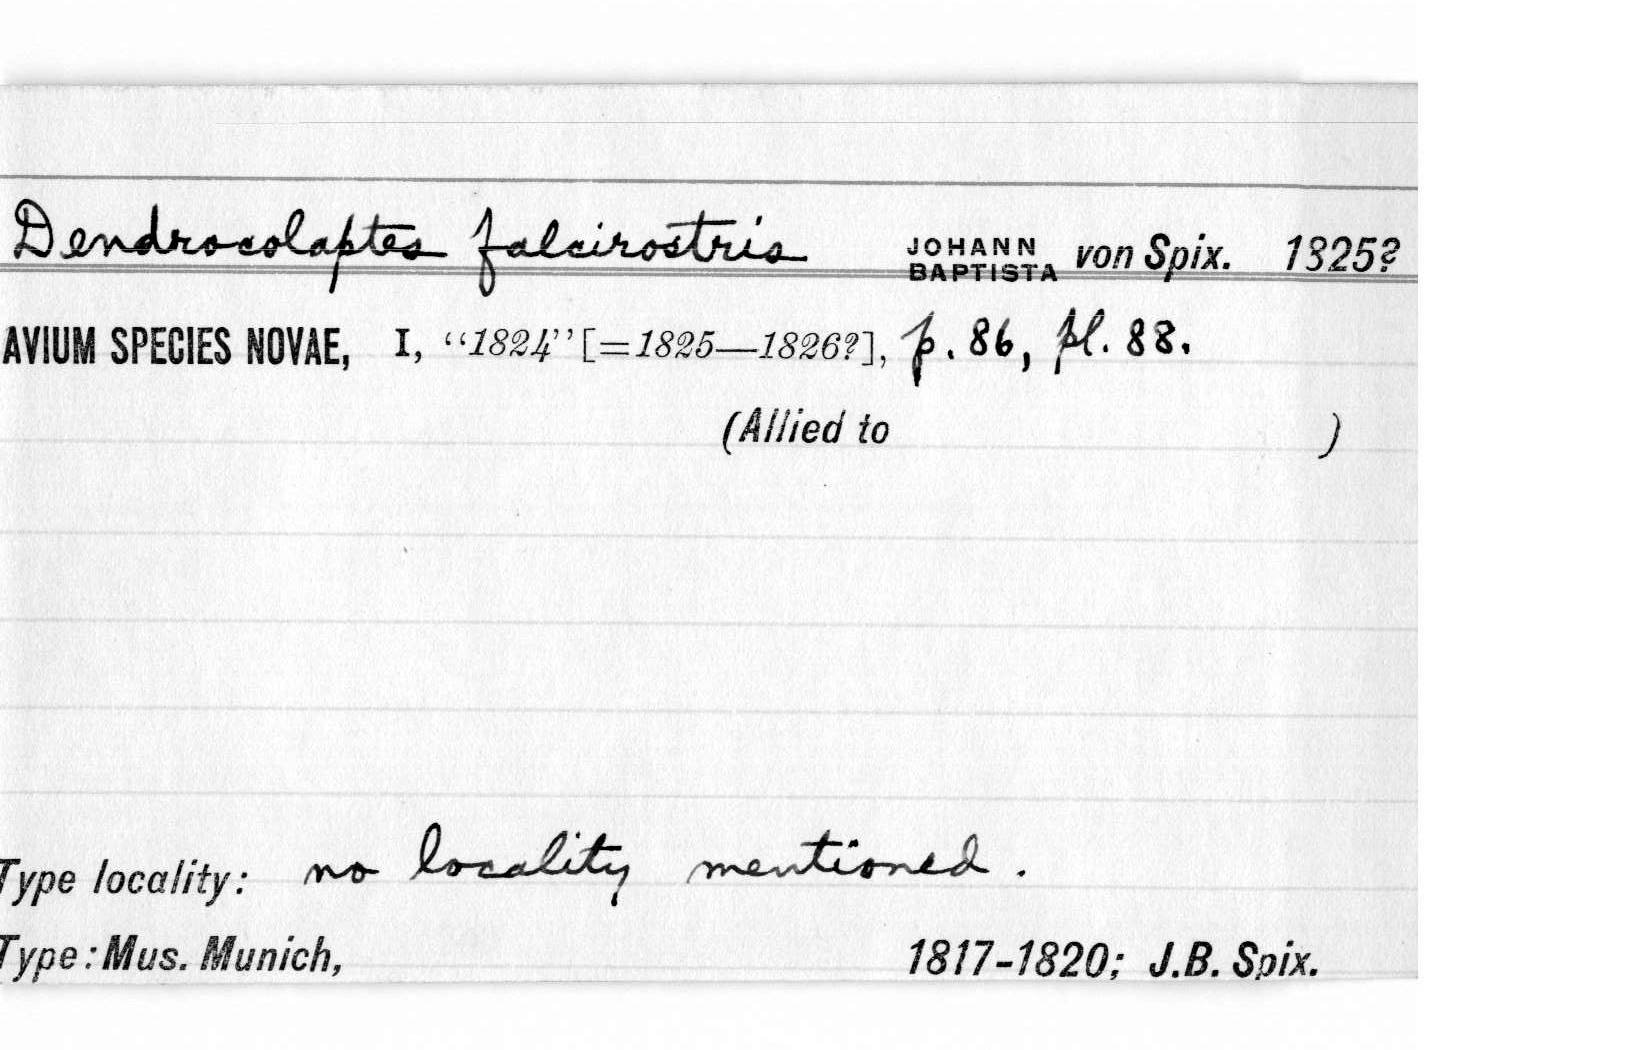 Dendrocolaptes falcirostris JOHANN BAPTISTA von Spix. 1825?
AVIUM SPECIES NOVAE, I, “1824” [=1825—1826?], p. 86, pl. 88.
(Allied to )
Type locality: no locality mentioned.
Type: Mus. Munich, 1817-1820; J.B. Spix.